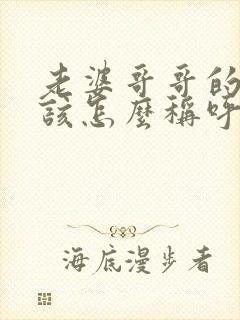 老婆哥哥的
該怎麼稱呼
海底漫步者